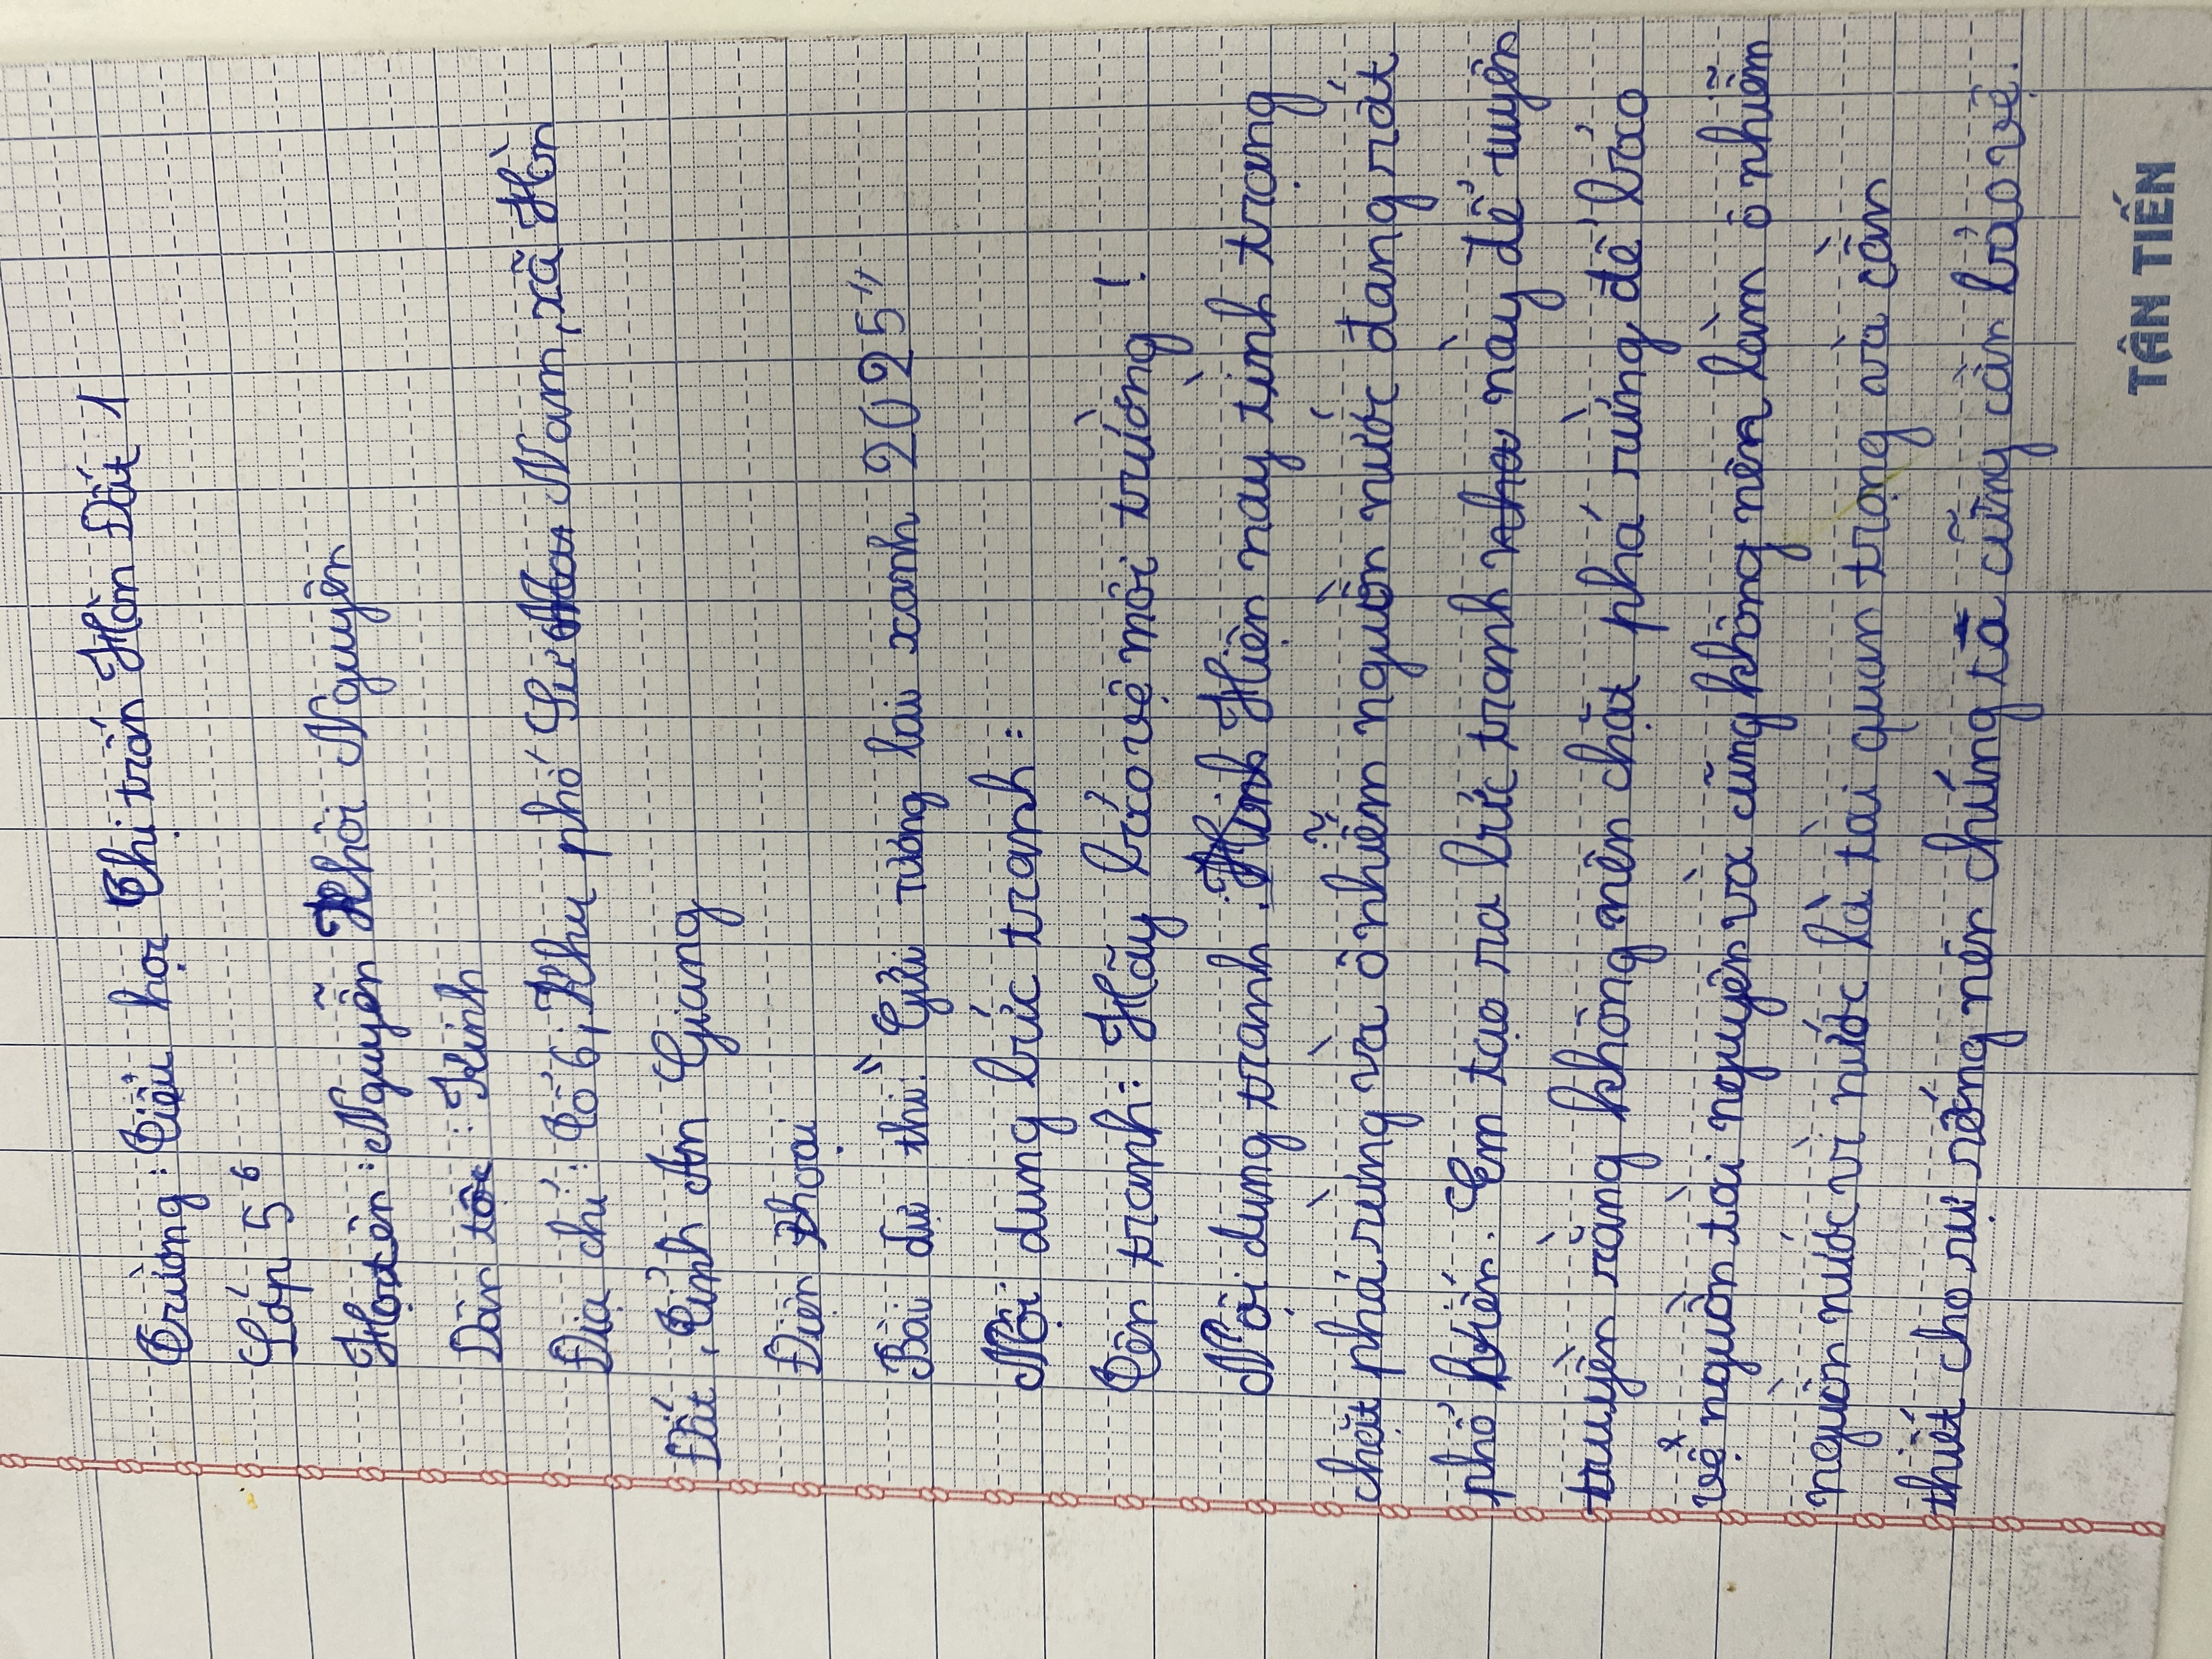 Trường: Tiểu học Thị trấn Hòn Đất 1
Lớp 5⁶
Họ tên: Nguyễn Khôi Nguyên
Dân tộc: Kinh
Địa chỉ: Tổ 6, Khu phố Sư Nam, xã Hòn
Đất, Tỉnh An Giang
Điện thoại
Bài dự thi: "Gửi tương lai xanh 2025"
Nội dung bức tranh:
Tên tranh: Hãy bảo vệ môi trường!
Nội dung tranh. Hiện nay tình trạng
chặt phá rừng và ô nhiễm nguồn nước đang rất
phổ biến. Em tạo ra bức tranh này để tuyên
truyền rằng không nên chặt phá rừng để bảo
vệ nguồn tài nguyên và cũng không nên làm ô nhiễm
nguồn nước vì nước là tài quan trọng và cần
thiết cho sự sống nên chúng ta cũng cần bảo vệ.
TÂN TIẾN